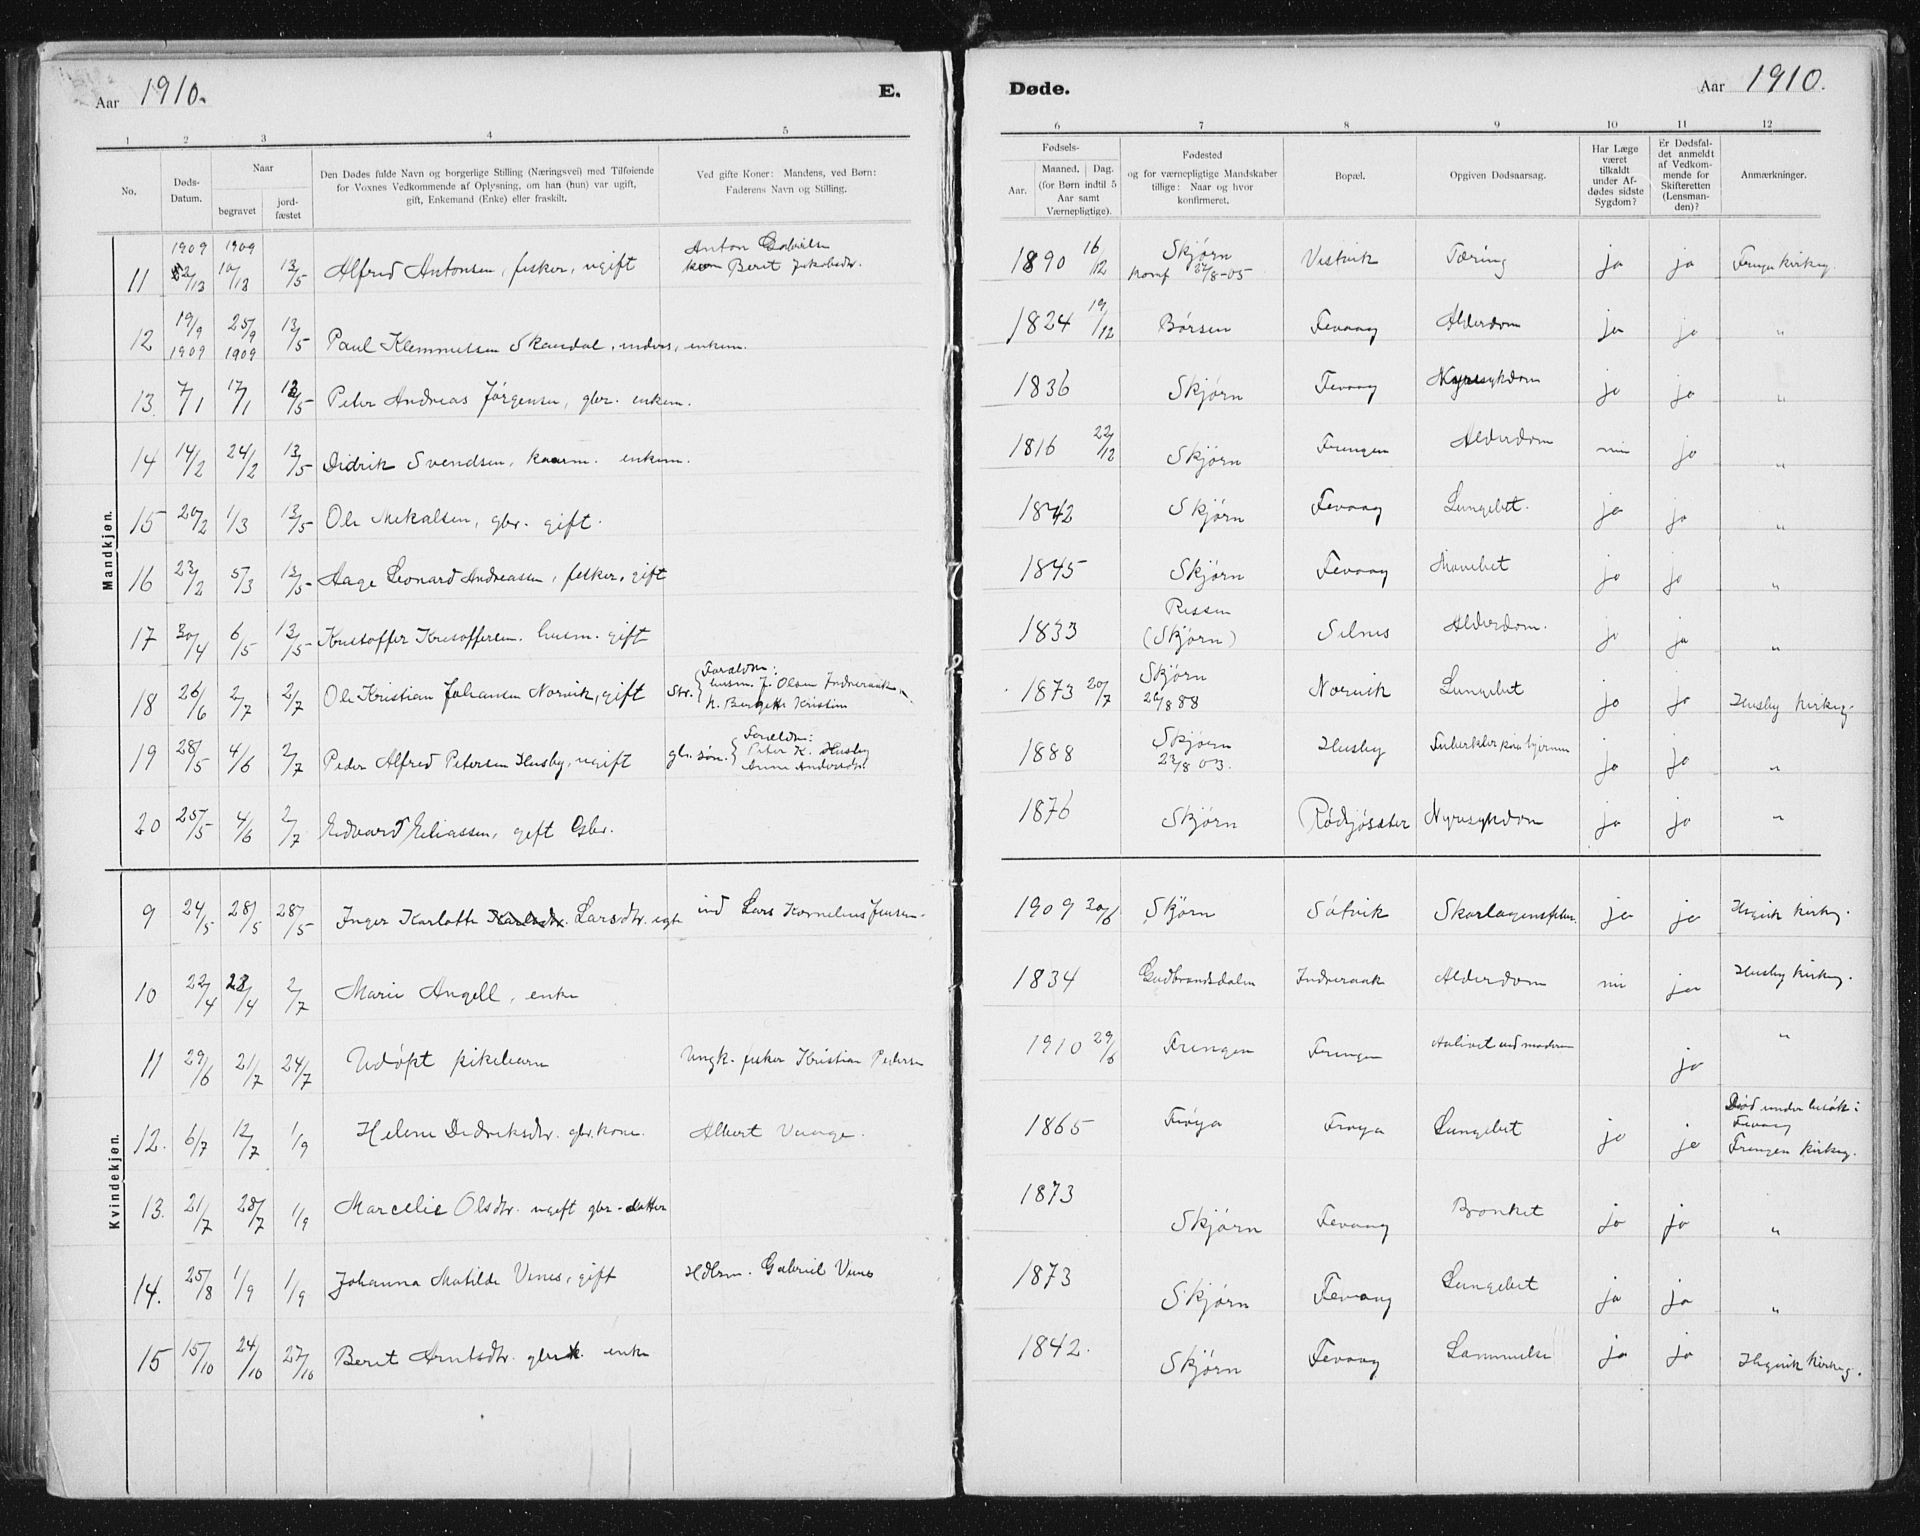 Aar 1910. E.
Døde. Aar 1910.
1 2 3 4 5
6 7 8 9 10 11 12
No. Døds-Datum. Naar begravet jord-fæstet
Den Dødes fulde Navn og borgerlige Stilling (Næringsvei) med Tilføiende for Voxnes Vedkommende af Oplysning, om han (hun) var ugift, gift, Enkemand (Enke) eller fraskilt.
Ved gifte Koner: Mandens, ved Børn: Faderens Navn og Stilling.
Fødsels- Aar. Maaned. Dag. (for Børn indtil 5 Aar samt Værnepligtige).
Fødested og for værnepligtige Mandskaber tillige: Naar og hvor konfirmeret.
Bopæl.
Opgiven Dødsaarsag.
Har Læge været tilkaldt under Af-dødes sidste Sygdom?
Er Dødsfal-det anmeldt af Vedkom-mende for Skifteretten (Lensman-den)?
Anmærkninger.
Mandkjøn.
11 1909 1909 10/12 13/5 Alfred Antonsen, fisker, ugift Anton Gabrielsen Berit Jakobsdtr. 1890 16/12 Skjørn Konf 27/8-05 Vestvik Tæring ja ja
12 19/9 1909 25/9 1909 13/5 Paul Klemmetsen Skaudal, inders, enkem. 1824 19/12 Børsen Fevaag Alderdom ja ja "
13. 7/1 17/1 13/5 Peter Andreas Jørgensen, gbr. enkem. 1836 Skjørn Fevaag Nyresykdom ja ja "
14 14/2 24/2 13/5 Didrik Svendsen, kaarm. enkem. 1816 22/12 Skjørn Frengen Alderdom nei ja "
15 20/2 1/3 13/5 Ole Mekalsen, gbr. gift. 1842 Skjørn Fevaag Lungebet. ja ja "
16 23/2 5/3 13/5 Aage Leonard Andreassen, fisker, gift 1845 Skjørn Fevaag Mavebet ja ja "
17 30/4 6/5 13/5 Kristoffer Kristoffersen. husm. gift 1833 Rissen (Skjørn) Selnes Alderdom. ja ja "
18 26/6 2/7 2/7 Ole Kristian Johansen Norvik, gift Str. Foreldre: husm. J. Olsen Indreraak, h. Bergette Kristine 1873 20/7 Skjørn 26/8 88 Norvik Lungebet ja ja Husby kirkeg.
19 28/5 4/6 2/7 Peder Alfred Petersen Husby, ugift gbr. søn. Foreldre: Peter K. Husby Anne Andersdtr 1888 Skjørn 23/8 03. Husby Tuberkler paa hjernen ja ja "
20 25/5 4/6 2/7 Edvard Eliassen, gift Gbr. 1876 Skjørn Rødsjøsæter Nyresykdom ja ja "
Kvindekjøn.
9 24/5 28/5 28/5 Inger Karlotte Larsdtr. egte ind Lars Kornelius Jensen 1909 20/6 Skjørn Søtvik Skarlagensfeber ja ja kirkeg.
10 22/4 28/4 2/7 Marie Angell, enke 1834 Gudbrandsdalen Indreraak Alderdom nei ja Husby kirkeg.
11 29/6 21/7 24/7 Udøpt pikebarn Ungk. fisker Kristian Pedersen 1910 29/6 Frengen Frengen Avlivet ved moderen ja "
12. 6/7 12/7 1/9 Helene Didriksdtr. gbr. kone. Albert Vange. 1865 Frøya Frøya Lungebet ja ja Død under besøk i Fevaag Frengen kirkeg.
13. 21/7 28/7 1/9 Marcelie Olsdtr. ugift gbr-datter 1873 Skjørn Fevaag Bronket ja ja "
14. 25/8 1/9 1/9 Johanna Matilde Venes, gift Hdlsm. Gabriel Venes 1873 Skjørn Fevaag Lungebet ja ja "
15 15/10 24/10 27/10 Berit Arntsdtr. enke 1842. Skjørn Fevaag Lammelse ja ja kirkeg.